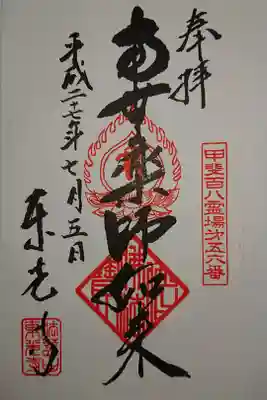 奉拝
甲斐百八霊場㐧五六番
南無薬師如来
平成二十七年七月五日
東光寺